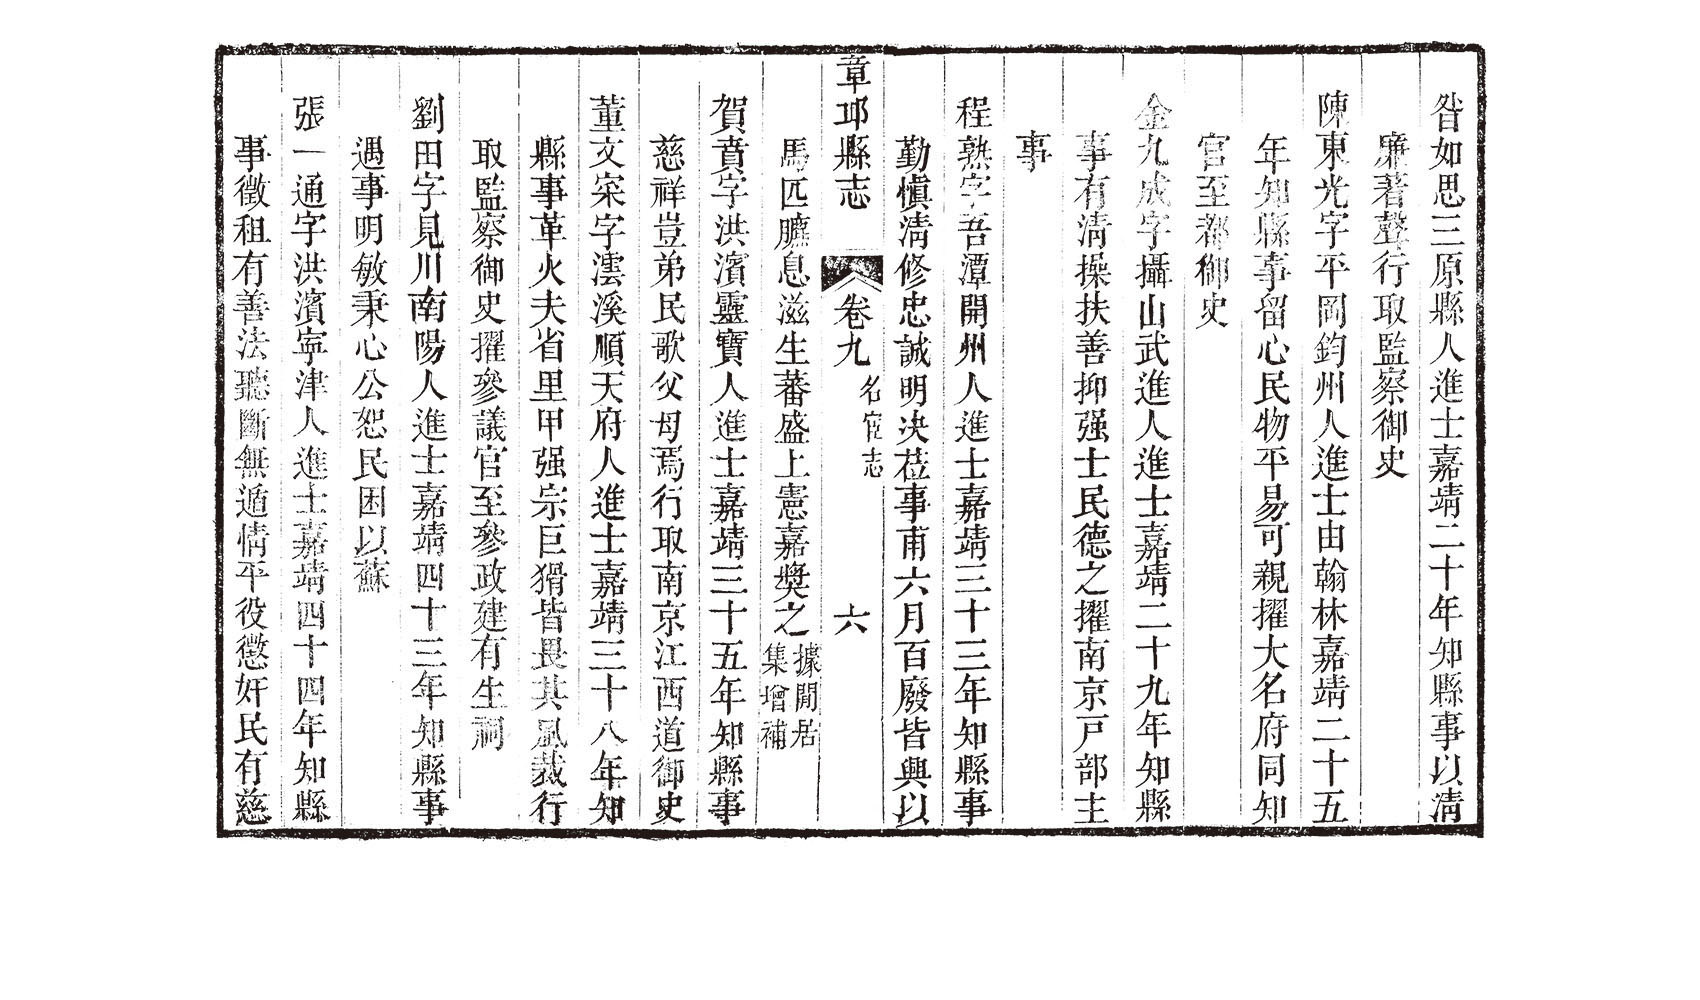 昝如思三原縣人進士嘉靖二十年知縣事以清
廉著聲行取監察御史
陳東光字平岡鈞州人進士由翰林嘉靖二十五
年知縣事留心民物平易可親擢大名府同知
官至都御史
金九成字攝山武進人進士嘉靖二十九年知縣
事有清操扶善抑强士民德之擢南京戸部主
事
程熟字吾潭開州人進士嘉靖三十三年知縣事
勤愼清修忠誠明决莅事甫六月百廢皆興以
章邱縣志 卷九 名宦志 六
馬匹臕息滋生蕃盛上憲嘉獎之據閒居集增補
賀賁字洪濱靈寶人進士嘉靖三十五年知縣事
慈祥豈弟民歌父母焉行取南京江西道御史
董文寀字澐溪順天府人進士嘉靖三十八年知
縣事革火夫省里甲强宗巨猾皆畏其風裁行
取監察御史擢參議官至參政建有生祠
劉田字見川南陽人進士嘉靖四十三年知縣事
遇事明敏秉心公恕民困以蘇
張一通字洪濱寧津人進士嘉靖四十四年知縣
事徵租有善法聽斷無遁情平役懲奸民有慈